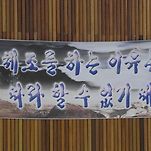 체조를 하는 이유는
따라 할 수 있기 때